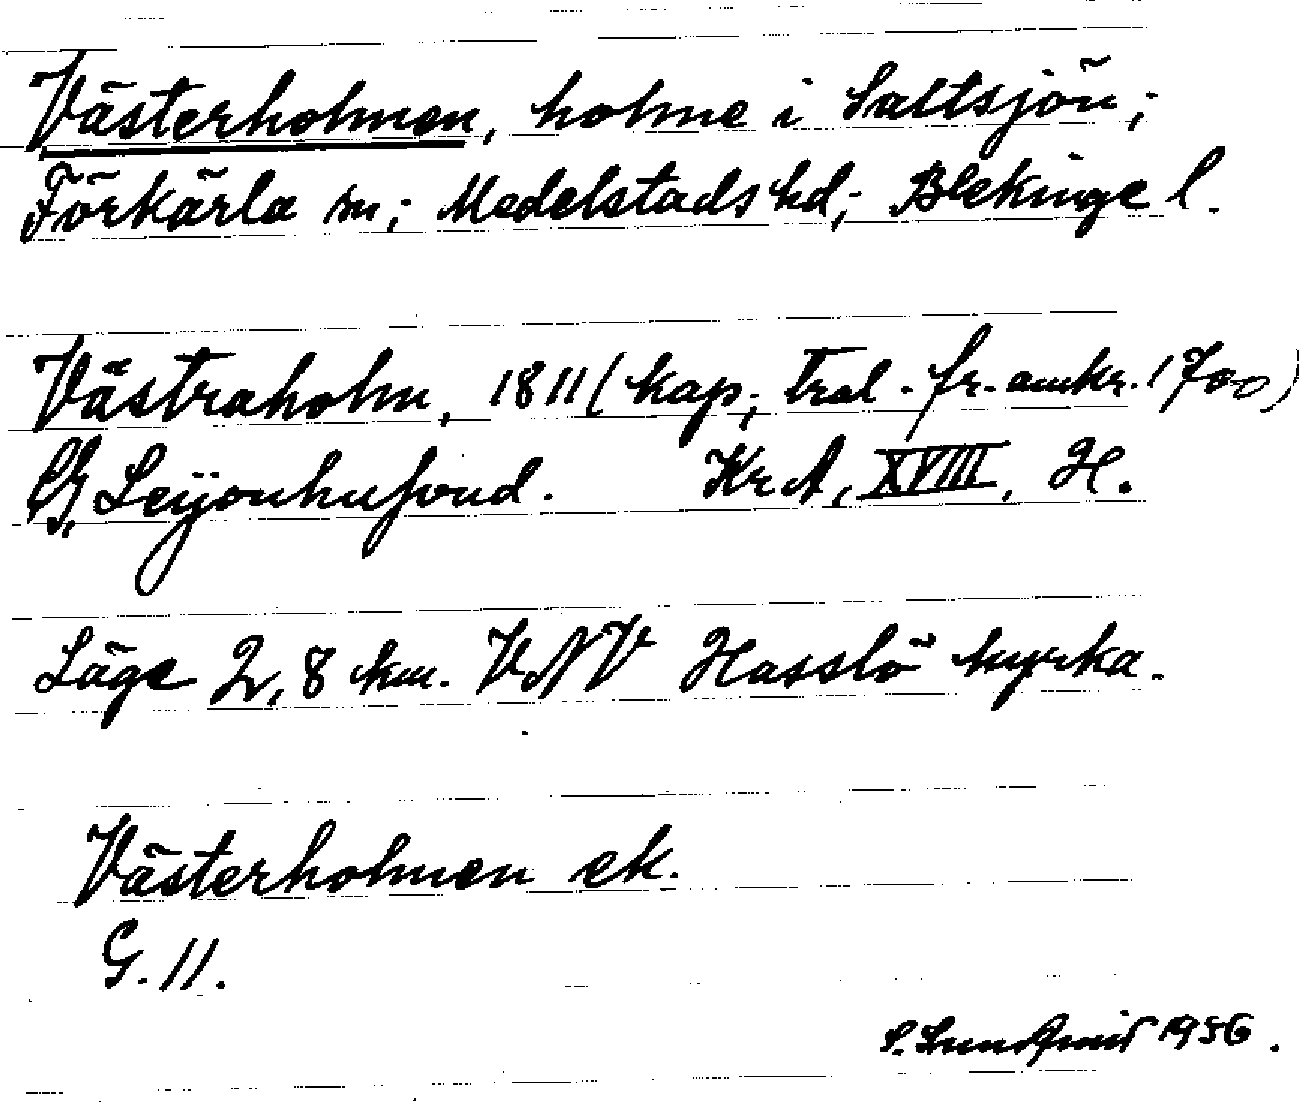 Västerholmen, holme i Saltsjön;
Förkärla sn; Medelstads hd; Blekinge l.
Västraholm, 1811 (kap; tral. fr. omkr. 1700)
G. Leijonhufvud. KrA, XVIII, H.
Läge 2,8 km. VNV Hasslö kyrka.
Västerholmen ek.
G. 11.
S. Lundqvist 1956.